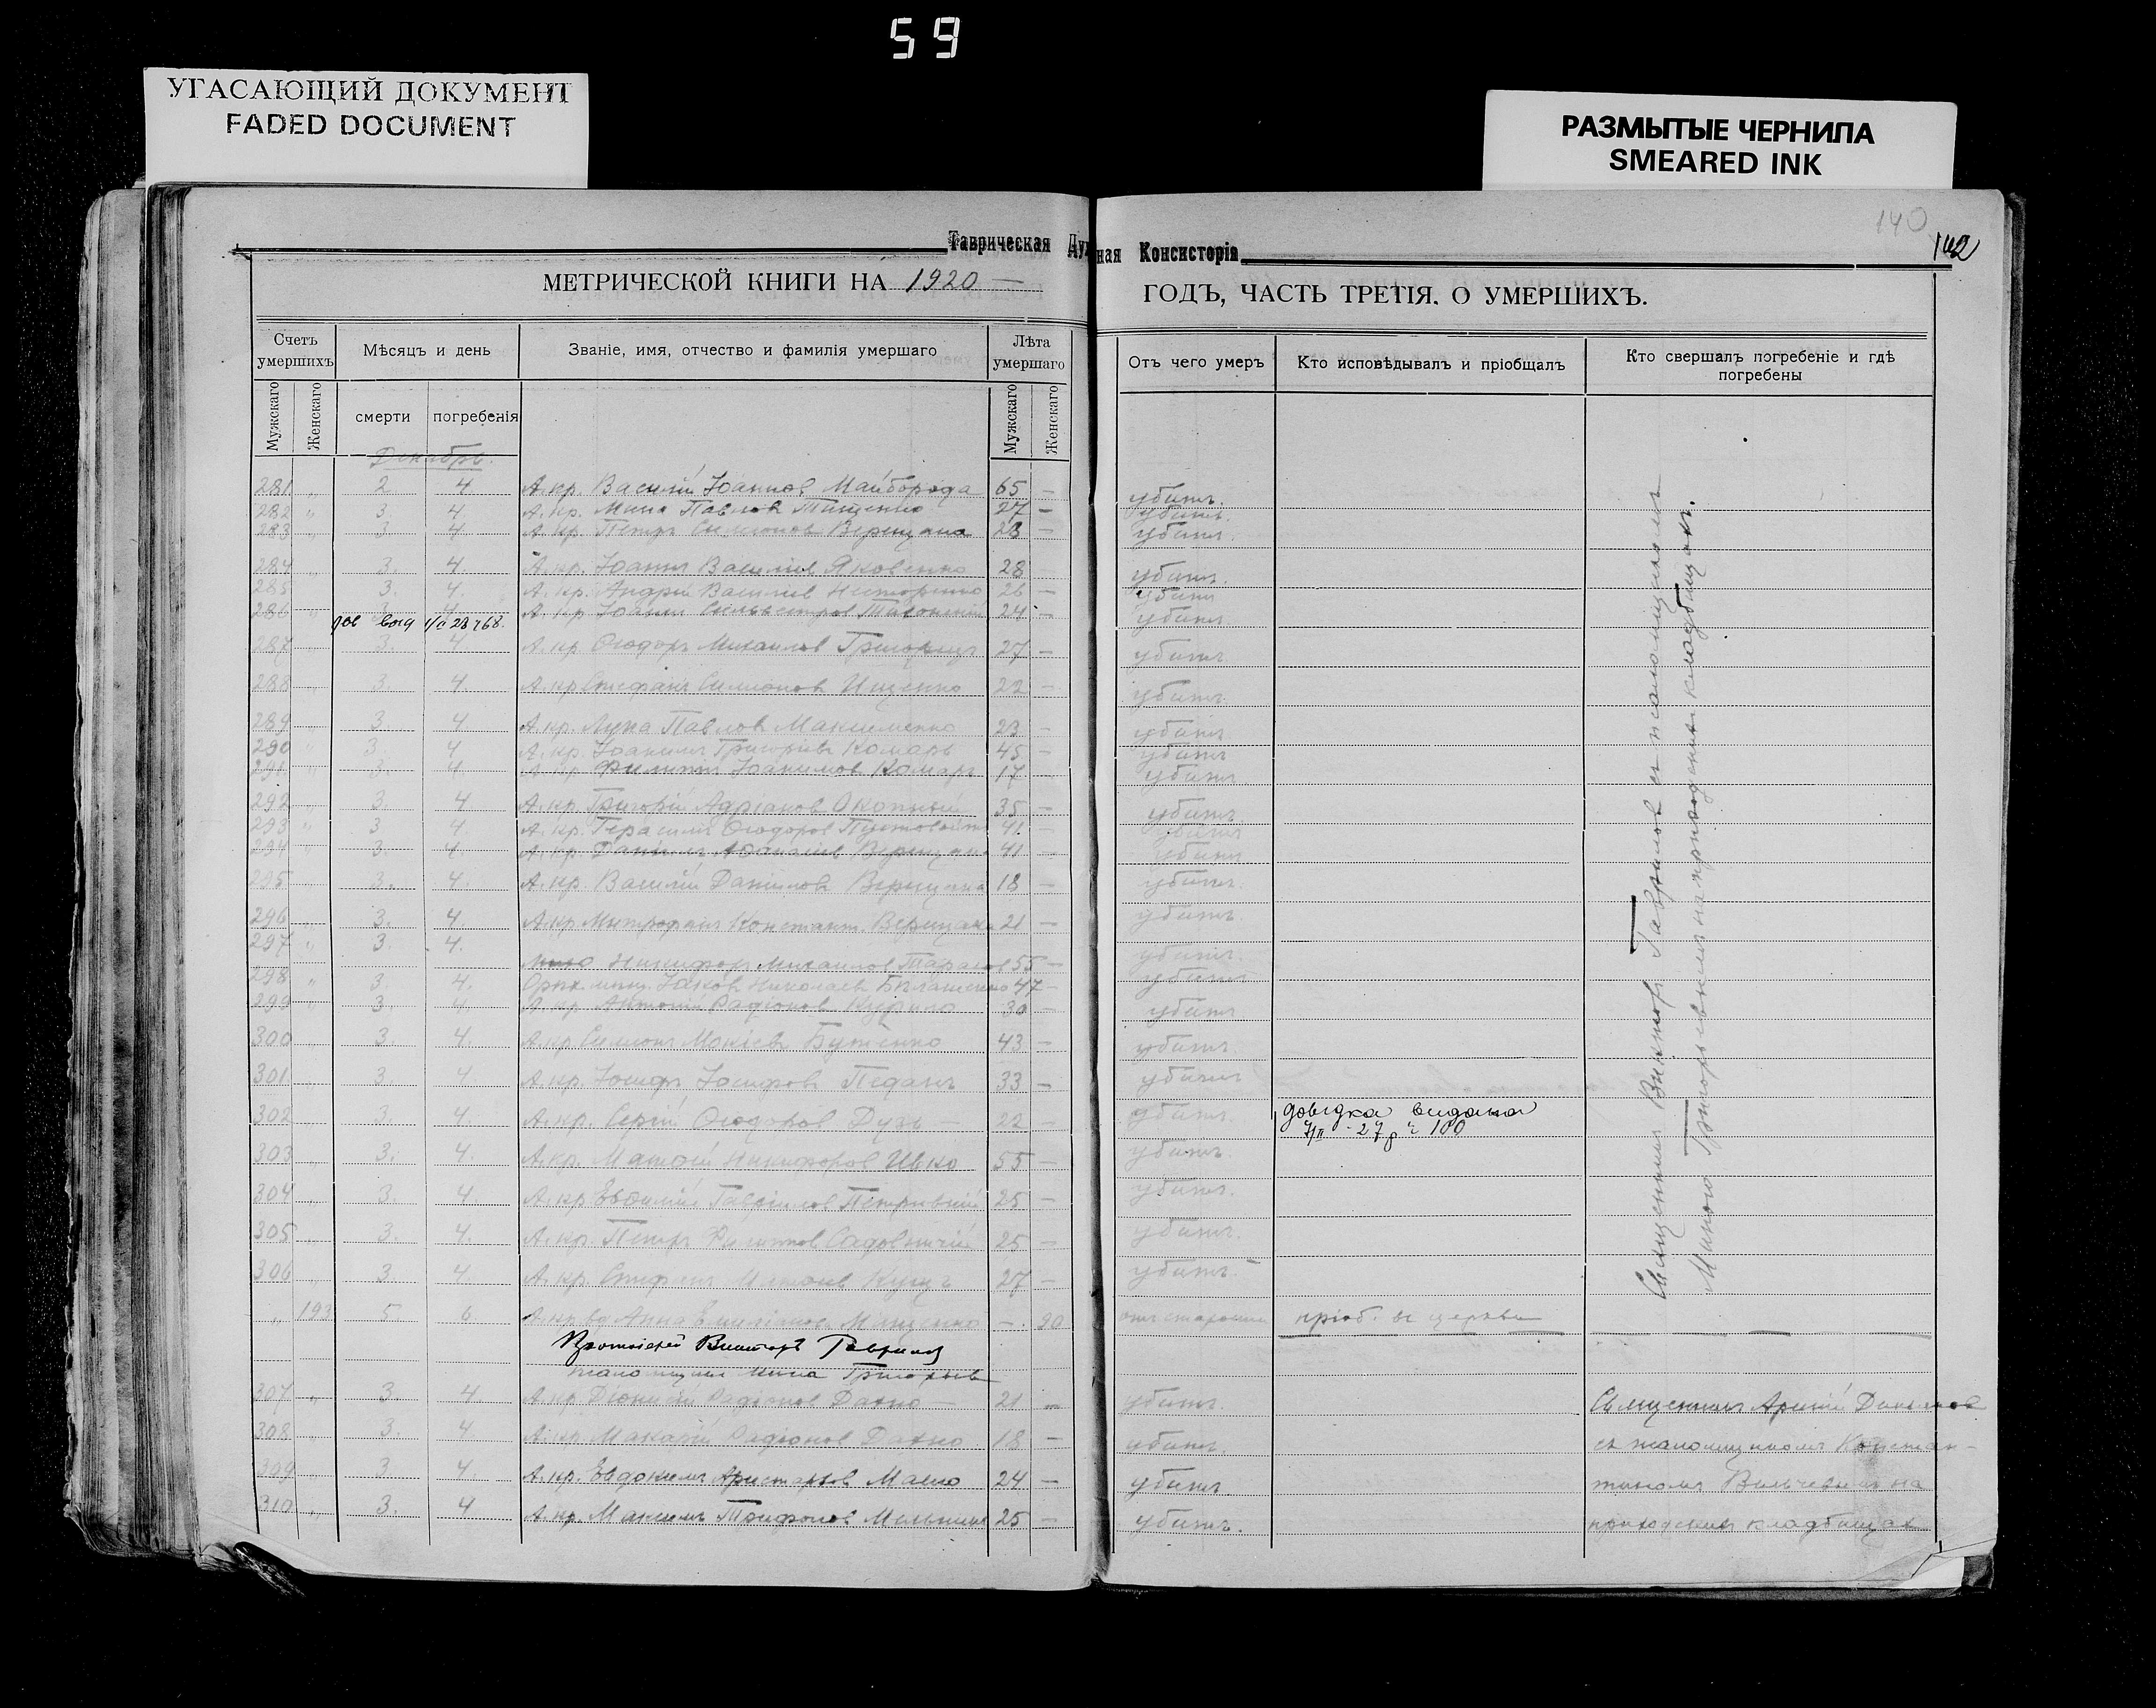 59
УГАСАЮЩИЙ ДОКУМЕНТ
FADED DOCUMENT
РАЗМЫТЫЕ ЧЕРНИЛА
SMEARED INK
140
142
Таврическая Духовная Консисторія
МЕТРИЧЕСКОЙ КНИГИ НА 1920 ГОДЪ, ЧАСТЬ ТРЕТІЯ. О УМЕРШИХЪ.
Счетъ умершихъ
Мѣсяцъ и день
Званіе, имя, отчество и фамилія умершаго
Лѣта умершаго
Отъ чего умеръ
Кто исповѣдывалъ и пріобщалъ
Кто свершалъ погребеніе и гдѣ погребены
Мужскаго Женскаго смерти погребенія Мужскаго Женскаго
Декабрь.
281 " 2 4 А. кр. Василій Іоаннов Майборода 65 — убитъ.
282 " 3. 4. А. кр. Мина Павлов Тищенко 27 — убитъ.
283 " 3 4. А. кр. Петръ Симеонов Верещака 28 — убитъ.
284 3. 4. А. кр. Іоаннъ Василіев Яковенко 28 убитъ.
285 3. 4. А. кр. Андрей Василіев Нестеренко 26 — убитъ
286 4 А. кр. Сильвестров 24 — убитъ.
287 3. 4. А. кр. Ѳеодоръ Михаилов 27 — убитъ
288 3. 4. А. кр. Стефанъ Симеонов Ищенко 22 — убитъ.
289 3. 4 А. кр. Лука Павлов Максименко 23 — убитъ
290 " 3. 4 А. кр. Іоакимъ Григоріев Комаръ 45 — убитъ
291 " 3. 4. А. кр. Филиппъ Іоакимов Комаръ 17 убитъ.
292 3. 4 А. кр. Григорій Адріанов Окопный 35 — убитъ
293 " 3 4 А. кр. Герасимъ Ѳеодоров 41 — убитъ
294 " 3 4. А. кр. Даніилъ Верещака 41 убитъ
295 3. 4. А. кр. Василій Даніилов Верещака 18 — убитъ.
296 3. 4. А. кр. Митрофанъ Констант. Верещака 21 — убитъ.
297 " 3. 4. Никифоръ Михаилов Тарасов 55 — убитъ.
298 " 3. 4. Іаковъ Николаев 47 — убитъ
299 " 3 А. кр. Антоній Радіонов Курило 30 — убитъ
300 3. 4. А. кр. Симеонъ Мокіев Бутенко 43 — убитъ.
301 3. 4 А. кр. Іосифъ Іосифов Педанъ 33 — убитъ
302 3. 4. А. кр. Сергій Ѳеодоров Дузь 22 — убитъ.
довідка видана
303 3. 4. А. кр. Матѳей Никифоров Ивко 55 — убитъ.
304 3. 4. А. кр. Евѳимій Гавріилов 25 — убитъ.
305 3. 4. А. кр. Петръ Филиппов Садовничій 25 — убитъ.
306 3. 4 А. кр. Стефанъ Матѳіев Кущъ 27 — убитъ.
" 193 5 6 А. кр. вд. Анна Мищенко — 80 отъ старости пріоб. въ церкви
Священникъ Викторъ Гаврилов съ псаломщикомъ
Миною Григорьевимъ на приходскомъ кладбищѣ.
Протоіерей Викторъ Гаврилов
псаломщикъ Мина Григорьев
307 " 3. 4. А. кр. Діонисій Радіонов Дахно — 21 убитъ.
308 3. 4 А. кр. Макарій Радіонов Дахно 18 — убитъ.
309 3 4. А. кр. Евдокимъ Аристархов Мамо 24 — убитъ
310 3. 4 А. кр. Максимъ Трифонов Мельник 25 — убитъ.
Священникъ Данилов
съ псаломщикомъ Констан-
тиномъ на
приходскомъ кладбищѣ